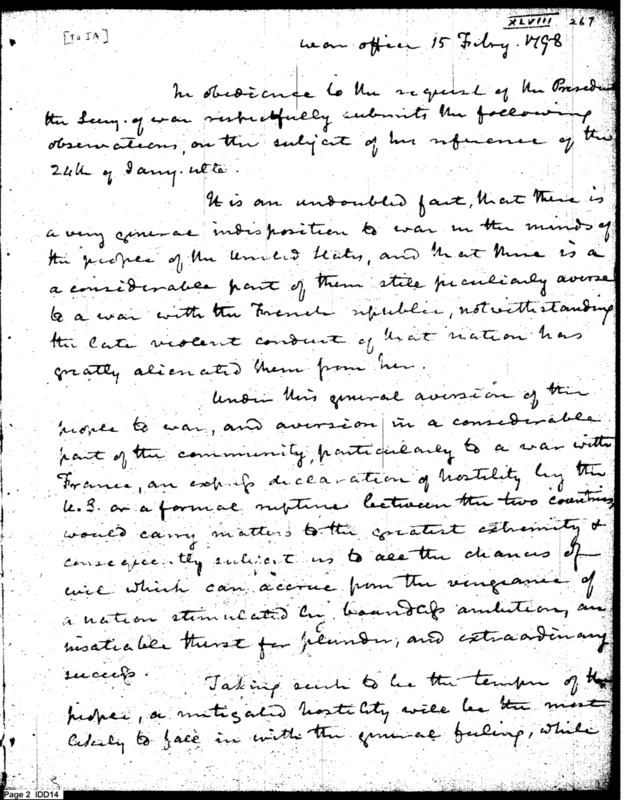 XLVIII 267
[TO JA]
War office 15 Feby. 1798
In obedience to the request of the President
the Secy. of war respectfully submits the following
observations, on the subject of his reference of the
24th of Jany. ulto.
It is an undoubted fact, that there is
a very general indisposition to war in the minds of
the people of the United States, and that there is a
a considerable part of them still peculiarly averse
to a war with the French republic, notwithstanding
the late violent conduct of that nation has
greatly alienated them from her.
Under this general aversion of the
people to war, and aversion in a considerable
part of the community, particularly to a war with
France, an express declaration of hostility by the
U.S. or a formal rupture between the two countries,
would carry matters to the greatest extremity &
consequently subject us to all the chances of
evil which can accrue from the vengeance of
a nation stimulated by boundless ambition, an
insatiable thirst for plunder, and extraordinary
success.
Taking such to be the temper of the
people, a mitigated hostility will be the most
likely to fall in with the general feeling, while
Page 2 IDD14